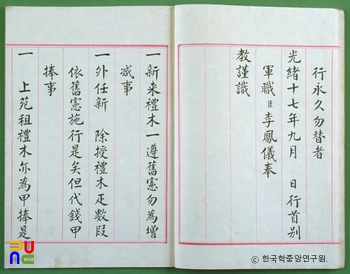 行永久勿替者
光緒十七年九月 日行首別
軍職臣李鳳儀奉
教謹識
一 新来禮木一遵舊憲勿為增
减事
一 外任新 除授禮木疋數段
依舊憲施行是矣但代錢甲
捧事
一 上苑租禮木亦為甲捧是
PUNC
© 한국학중앙연구원.